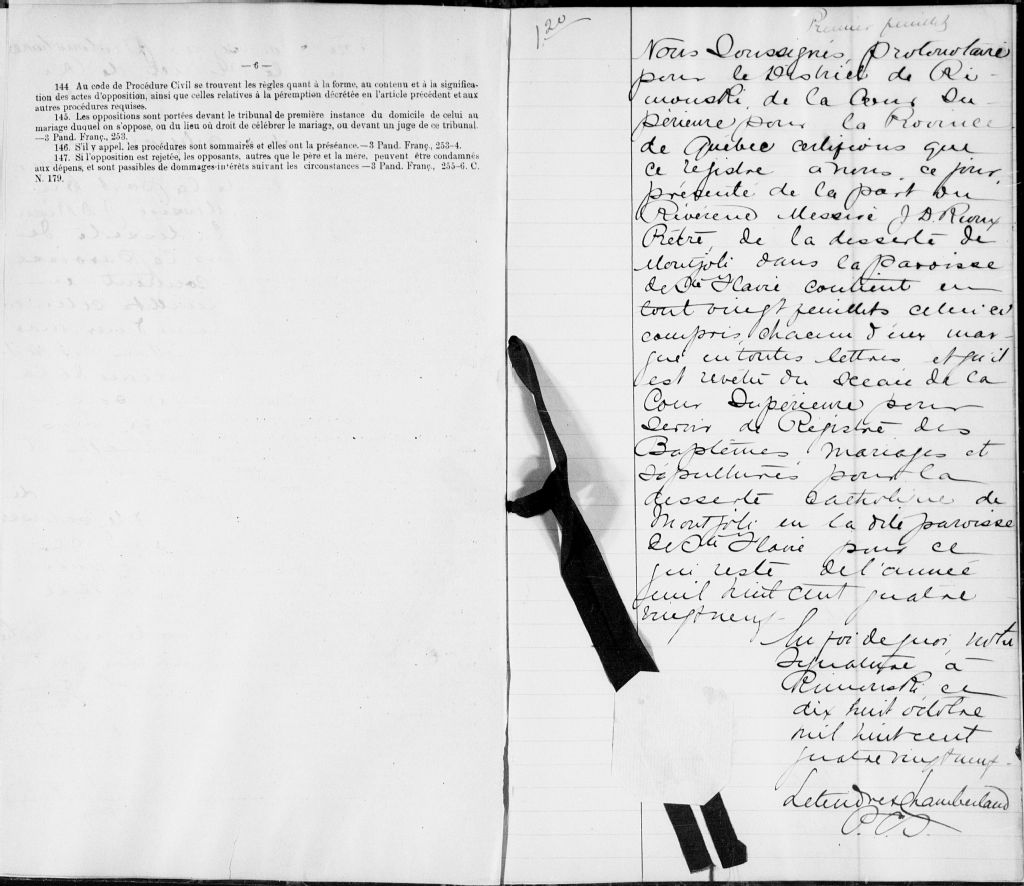 — 6 —
144 Au code de Procédure Civil se trouvent les règles quant à la forme, au contenu et à la significa-
tion des actes d'opposition, ainsi que celles relatives à la péremption décrétée en l'article précédent et aux
autres procédures requises.
145. Les oppositions sont portées devant le tribunal de première instance du domicile de celui au
mariage duquel on s'oppose, ou du lieu où droit de célébrer le mariage, ou devant un juge de ce tribunal.
—3 Pand. Franç., 253.
146. S'il y appel. les procédures sont sommaires et elles ont la préséance.—3 Pand. Franç., 253-4.
147. Si l'opposition est rejetée, les opposants, autres que le père et la mère, peuvent être condamnés
aux dépens, et sont passibles de dommages-intérêts suivant les circonstances—3 Pand. Franç., 255-6. C.
N. 179.
1.20
Premier feuillet
Nous Soussignés, Protonotaire
pour le District de Ri-
mouski, de la Cour Su-
périeure pour la Province
de Québec certifions que
ce régistre à nous, ce jour,
présenté de la part du
Révérend Messire J. D. Rioux
Ptre, de la desserte de
Montjoli dans la paroisse
de Ste Flavie contient en
tout vingt feuillets celui ci
compris, chacun d'eux mar-
qué en toutes lettres et qu'il
est revêtu du Sceau de la
Cour Supérieure pour
servir de Régistre des
Baptêmes, mariages et
sépultures pour la
desserte catholique de
Montjoli en la dite paroisse
de Ste Flavie pour ce
qui reste de l'année
mil huit cent quatre
vingt neuf.
En foi de quoi, notre
signature à
Rimouski, ce
dix huit octobre
mil huit cent
quatre vingt neuf.
Letendre & Chamberland
P. C. S.